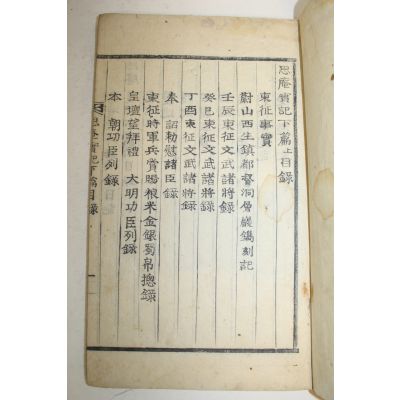 思庵實記下篇上目錄
東征事實
蔚山西生鎭都督洞層巖鐫刻記
壬辰東征文武諸將錄
癸巳東征文武諸將錄
丁酉東征文武諸將錄
奉 詔勅慰諸臣錄
東征時軍兵賞賜粮米金銀蜀帛摠錄
皇壇望拜禮 大明功臣列錄
本 朝功臣列錄
思庵實記下篇目錄 一